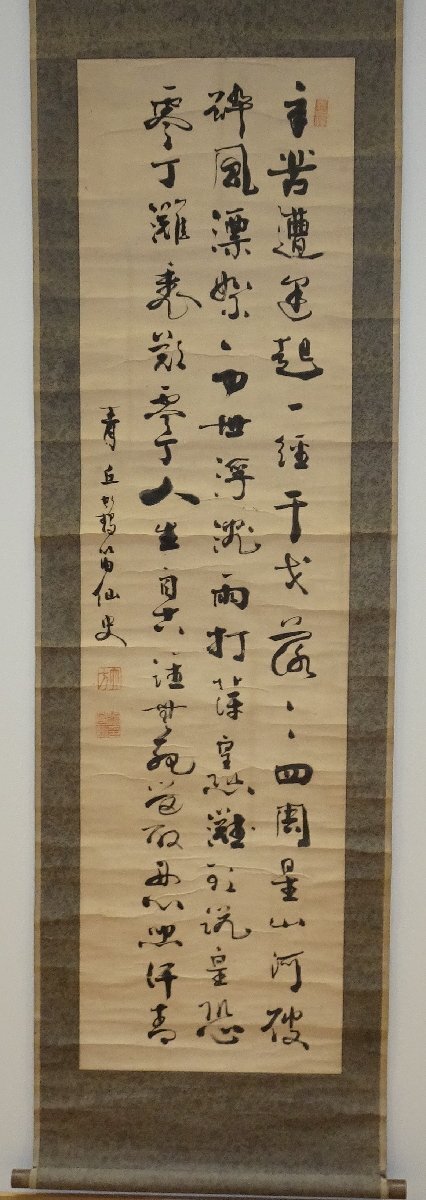 辛苦遭逢起一經干戈落々四周星山河破
碎風漂絮身世浮沈雨打萍皇恐灘頭説皇恐
零丁灘裏歎零丁人生自古誰無死留取丹心照汗青
青丘 笛仙史